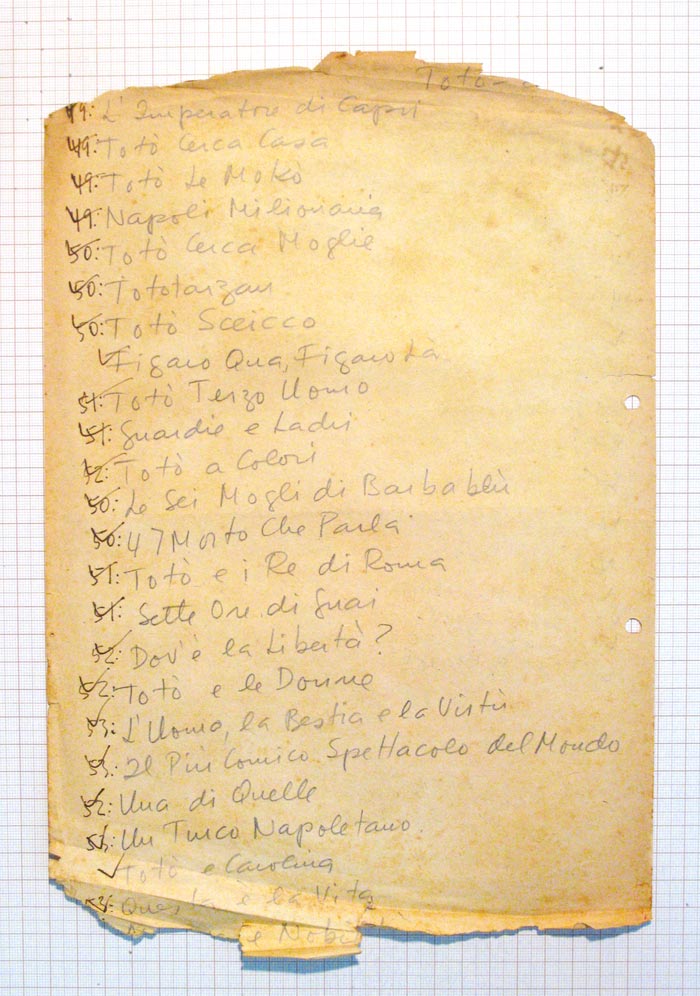 Totò-
49: L'Imperatore di Capri
49: Totò Cerca Casa
49: Totò Le Mokò
49: Napoli Milionaria
50: Totò Cerca Moglie
50: Tototarzan
50: Totò Sceicco
Figaro Qua, Figaro Là
51: Totò Terzo Uomo
51: Guardie e Ladri
52: Totò a Colori
50: Le Sei Mogli di Barbablù
50: 47 Morto Che Parla
51: Totò e i Re di Roma
51: Sette Ore di Guai
52: Dov'è la Libertà?
52: Totò e le Donne
53: L'Uomo, la Bestia e la Virtù
53: Il Più Comico Spettacolo del Mondo
52: Una di Quelle
53: Un Turco Napoletano.
Totò e Carolina
53: Questa è la Vita
e Nobiltà